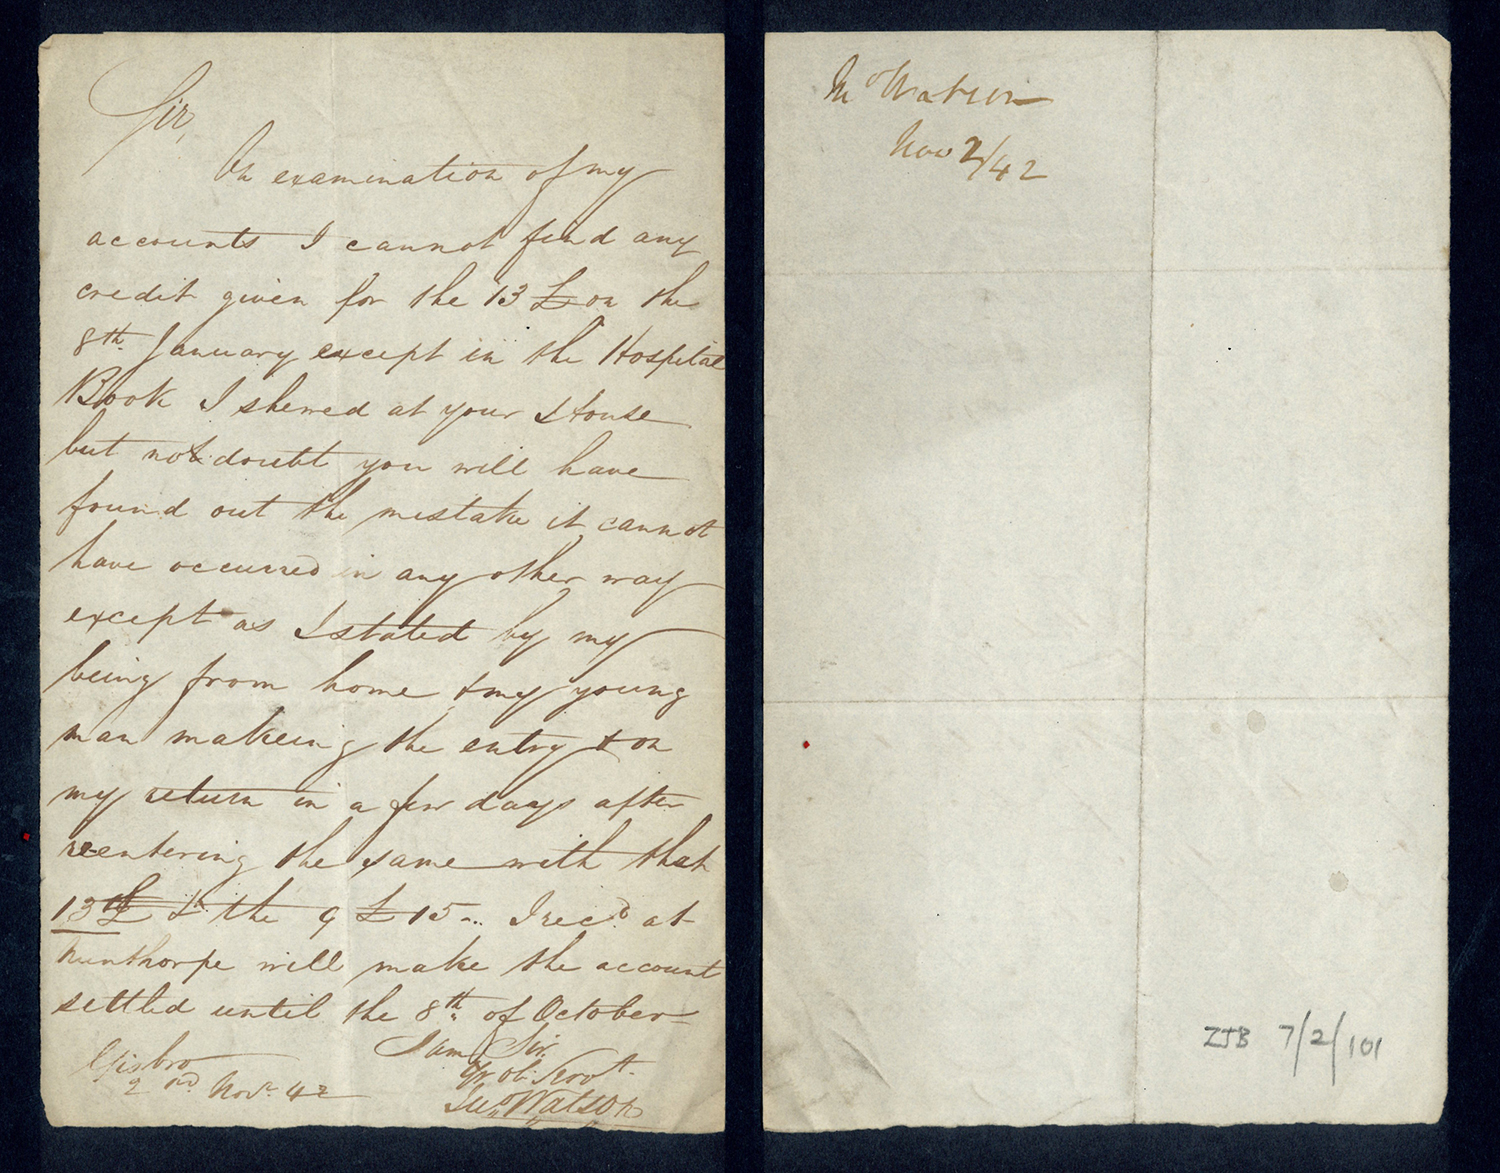 Sir,
On examination of my
accounts I cannot find any
credit given for the 13 £ on the
8th January except in the Hospital
Book I shewed at your House
but not doubt you will have
found out the mistake it cannot
have occurred in any other way
except as I stated by my
being from home & my young
man makeing the entry & on
my return in a few days after
reentering the same with that
13 £ & the 9 £ 15 .. I recd. at
Nunthorpe will make the account
settled until the 8th. of October
I am Sir
Gisbro
Yr ob. Servt.
2nd Novr. 42
Jno. Watson
Watson
Nov 2/42
ZJB 7/2/101